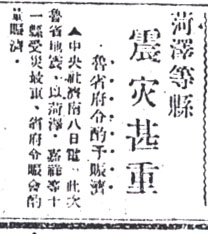 菏澤等縣
震灾甚重
魯省府令酌予賑濟
▲中央社濟南八日電、此次
魯省地震、以菏澤、嘉祥等十
一縣受灾较重、省府令賑會酌
量賑濟、